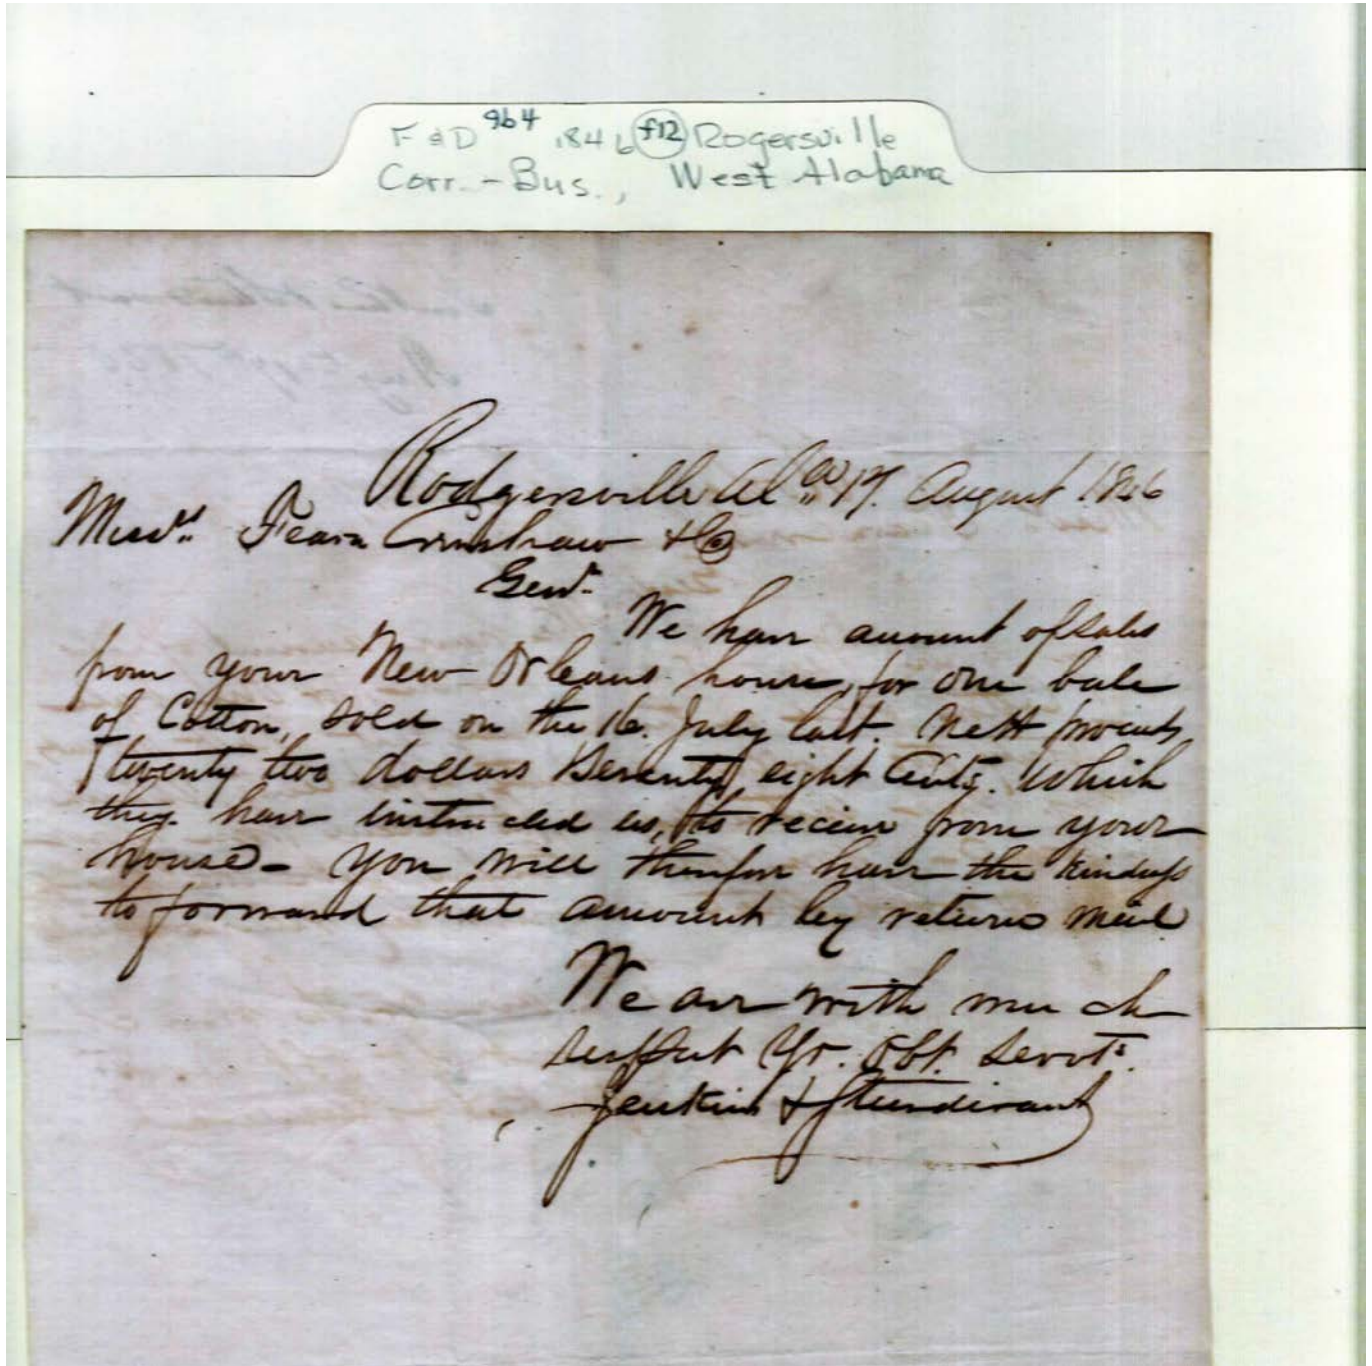 F & D 9b4 1846 f12 Rogersville
Corr. - Bus., West Alabama
Rodgersville Ala 17. August 1846
Messrs. Fearn Crenshaw & Co
Gent.
We have amount of sales
from your New Orleans house, for one bale
of Cotton, sold on the 16. July last. Nett proceeds
twenty two dollars Seventy eight Cents. which
they have instructed us, to receive from your
house - You will therefore have the kindness
to forward that amount by return mail
We are with much
respect Yr. Obt. Servts.
Jenkins & Sturdivant